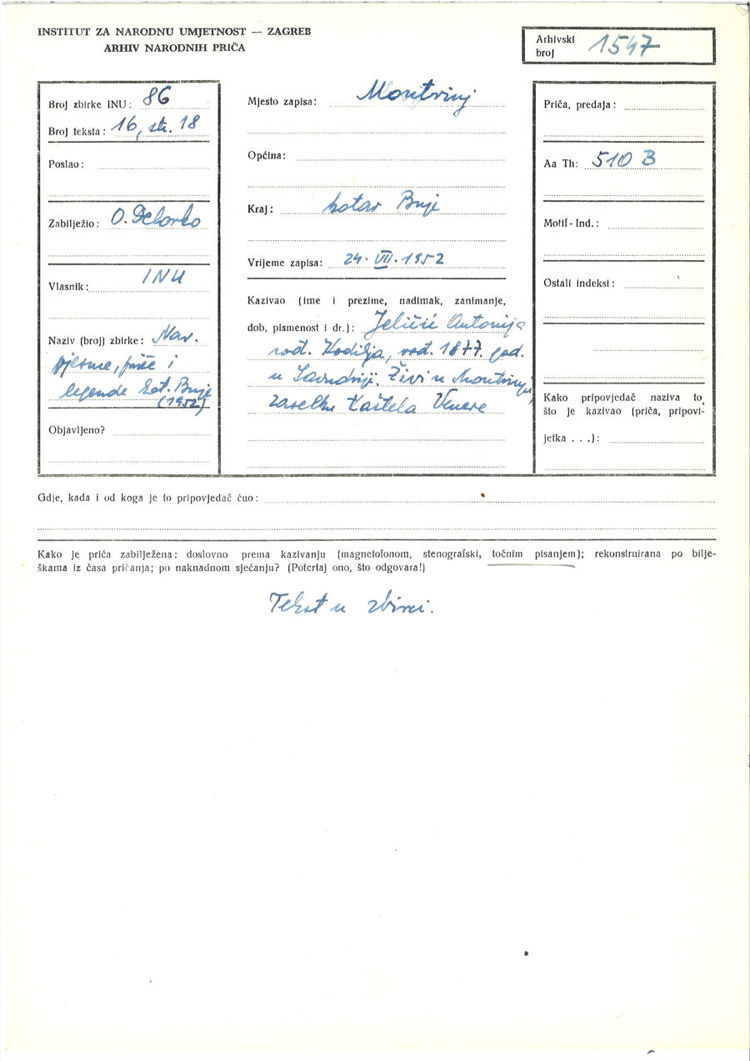 INSTITUT ZA NARODNU UMJETNOST — ZAGREB
ARHIV NARODNIH PRIČA
Arhivski broj 1547
Broj zbirke INU: 86
Broj teksta: 16, str. 18
Poslao:
Zabilježio: O. Delorko
Vlasnik: INU
Naziv (broj) zbirke: Nar.
pjesme, priče i
legende kot. Buje
(1952)
Objavljeno?
Mjesto zapisa: Montrinj
Općina:
Kraj: kotar Buje
Vrijeme zapisa: 24. VII. 1952
Kazivao (ime i prezime, nadimak, zanimanje,
dob, pismenost i dr.): Jeličić Antonija
rođ. Kodilja, rođ. 1877. god.
u Savudriji. Živi u Montrinju,
zaselku Kaštela Venere
Priča, predaja:
Aa Th: 510 B
Motif - Ind.:
Ostali indeksi:
Kako pripovjedač naziva to,
što je kazivao (priča, pripovi-
jetka . . .):
Gdje, kada i od koga je to pripovjedač čuo:
Kako je priča zabilježena: doslovno prema kazivanju (magnetofonom, stenografski, točnim pisanjem); rekonstruirana po bilje-
škama iz časa pričanja; po naknadnom sjećanju? (Potcrtaj ono, što odgovara!)
Tekst u zbirci.